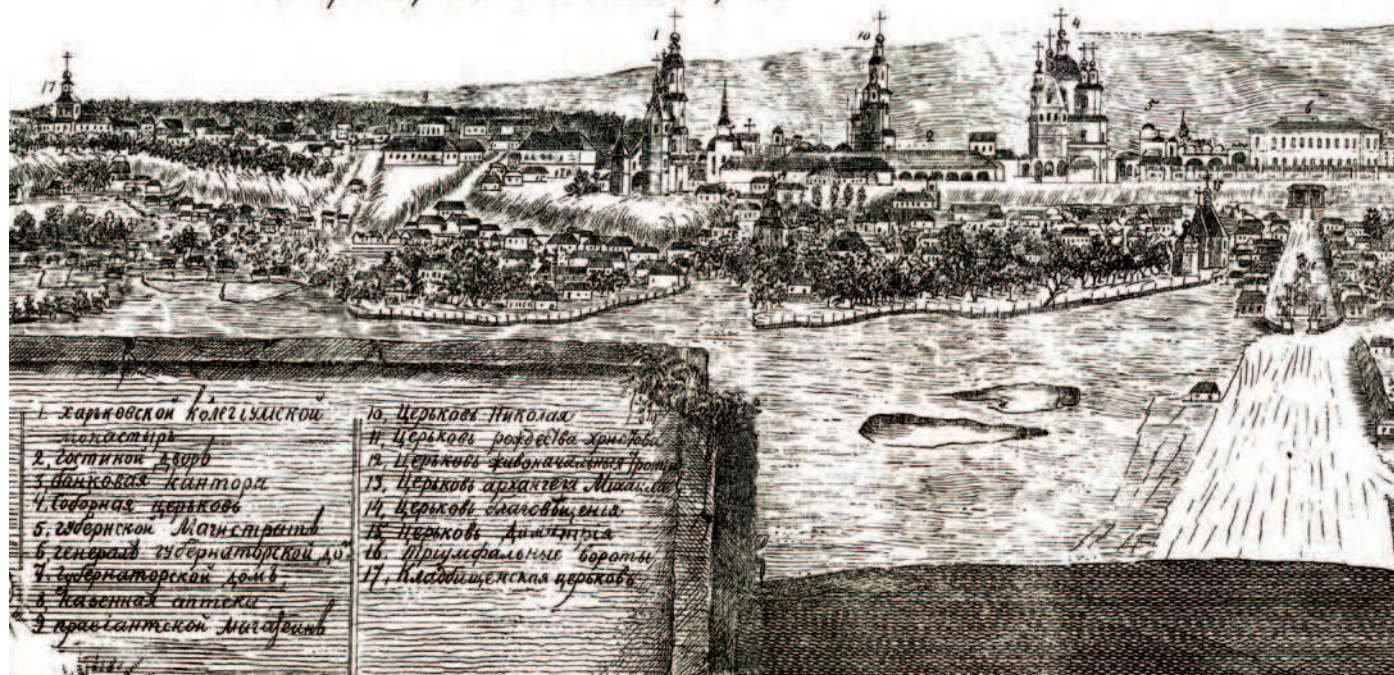 17
1
10
4
2
5
6
1. Харьковской Колегiумской
монастырь
2, Гостиной дворъ
3 банковая кантора
4, Соборная церьковь
5. губернской Магистратъ
6 генералъ губернаторской до
7. губернаторской домъ
8 казенная аптека
9 правiантской Магазеинъ
10, Церьковь Николая
11 Церьковь рождества христова
12, Церьковь живоначальныя Трои
13, Церьковь архангела Михаила
14 церьковь благовѣщенiя
15 Церьковь Димитрiя
16. Трiумфальные вороты
17, Кладбищенская церьковь